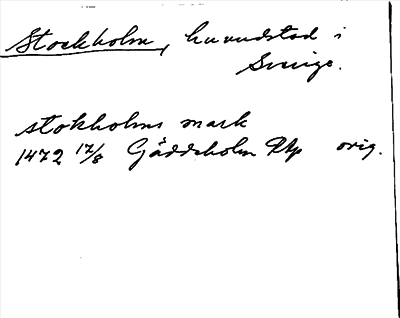 Stockholm, huvudstad i
Sverige.
stokholms mark
1472 17/8 Gäddeholm Rkp orig.